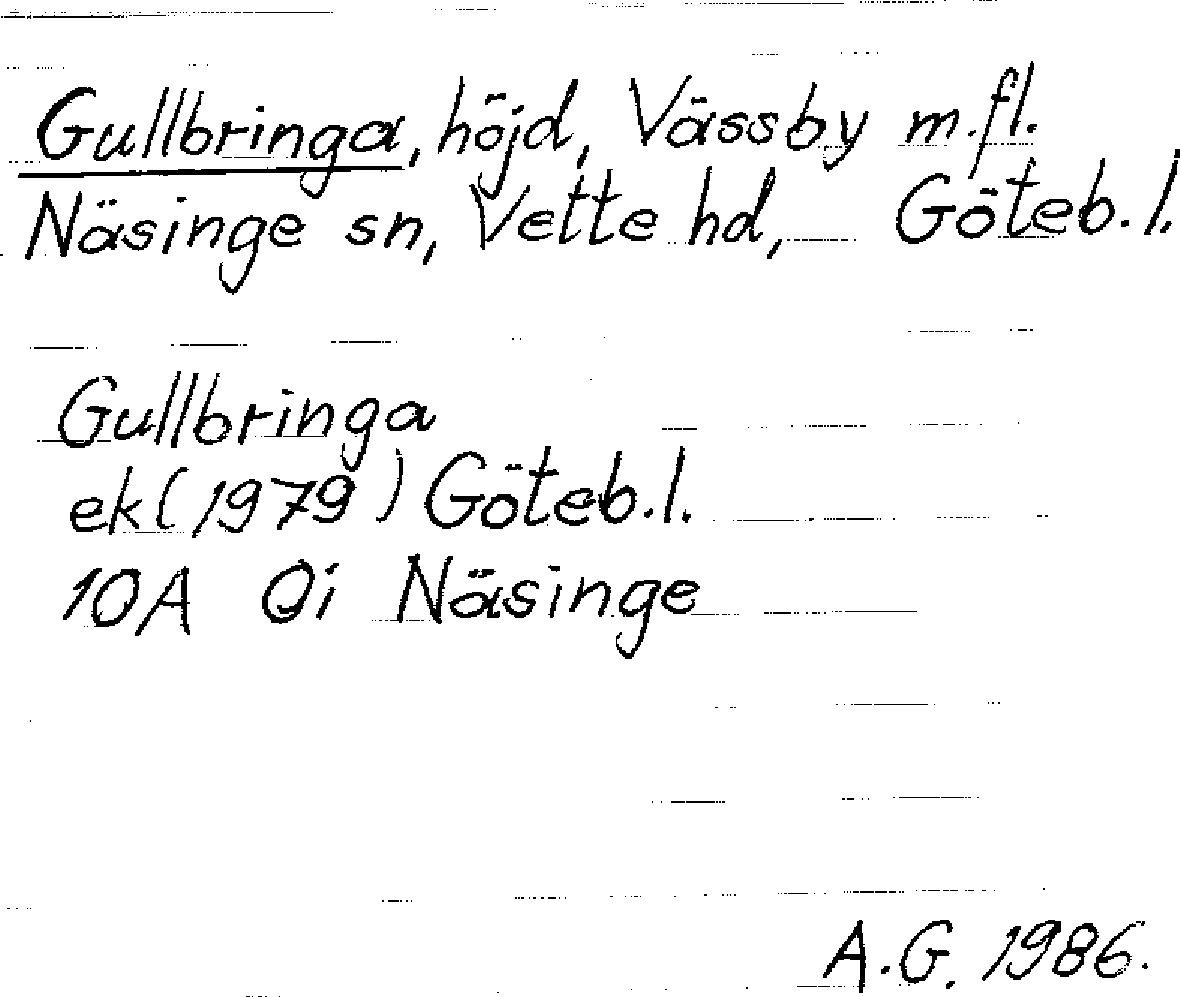 Gullbringa, höjd, Vässby m.fl.
Näsinge sn, Vette hd, Göteb.l.
Gullbringa
ek(1979) Göteb.l.
10A 0i Näsinge
A.G. 1986.